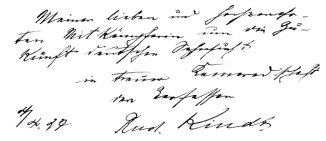 Meiner lieben und hochverehr-
ten Mitkämpferin um die Zu-
kunft deutscher Sehnsucht
in treuer Kameradschaft
der Verfasser
Rud. Kindt